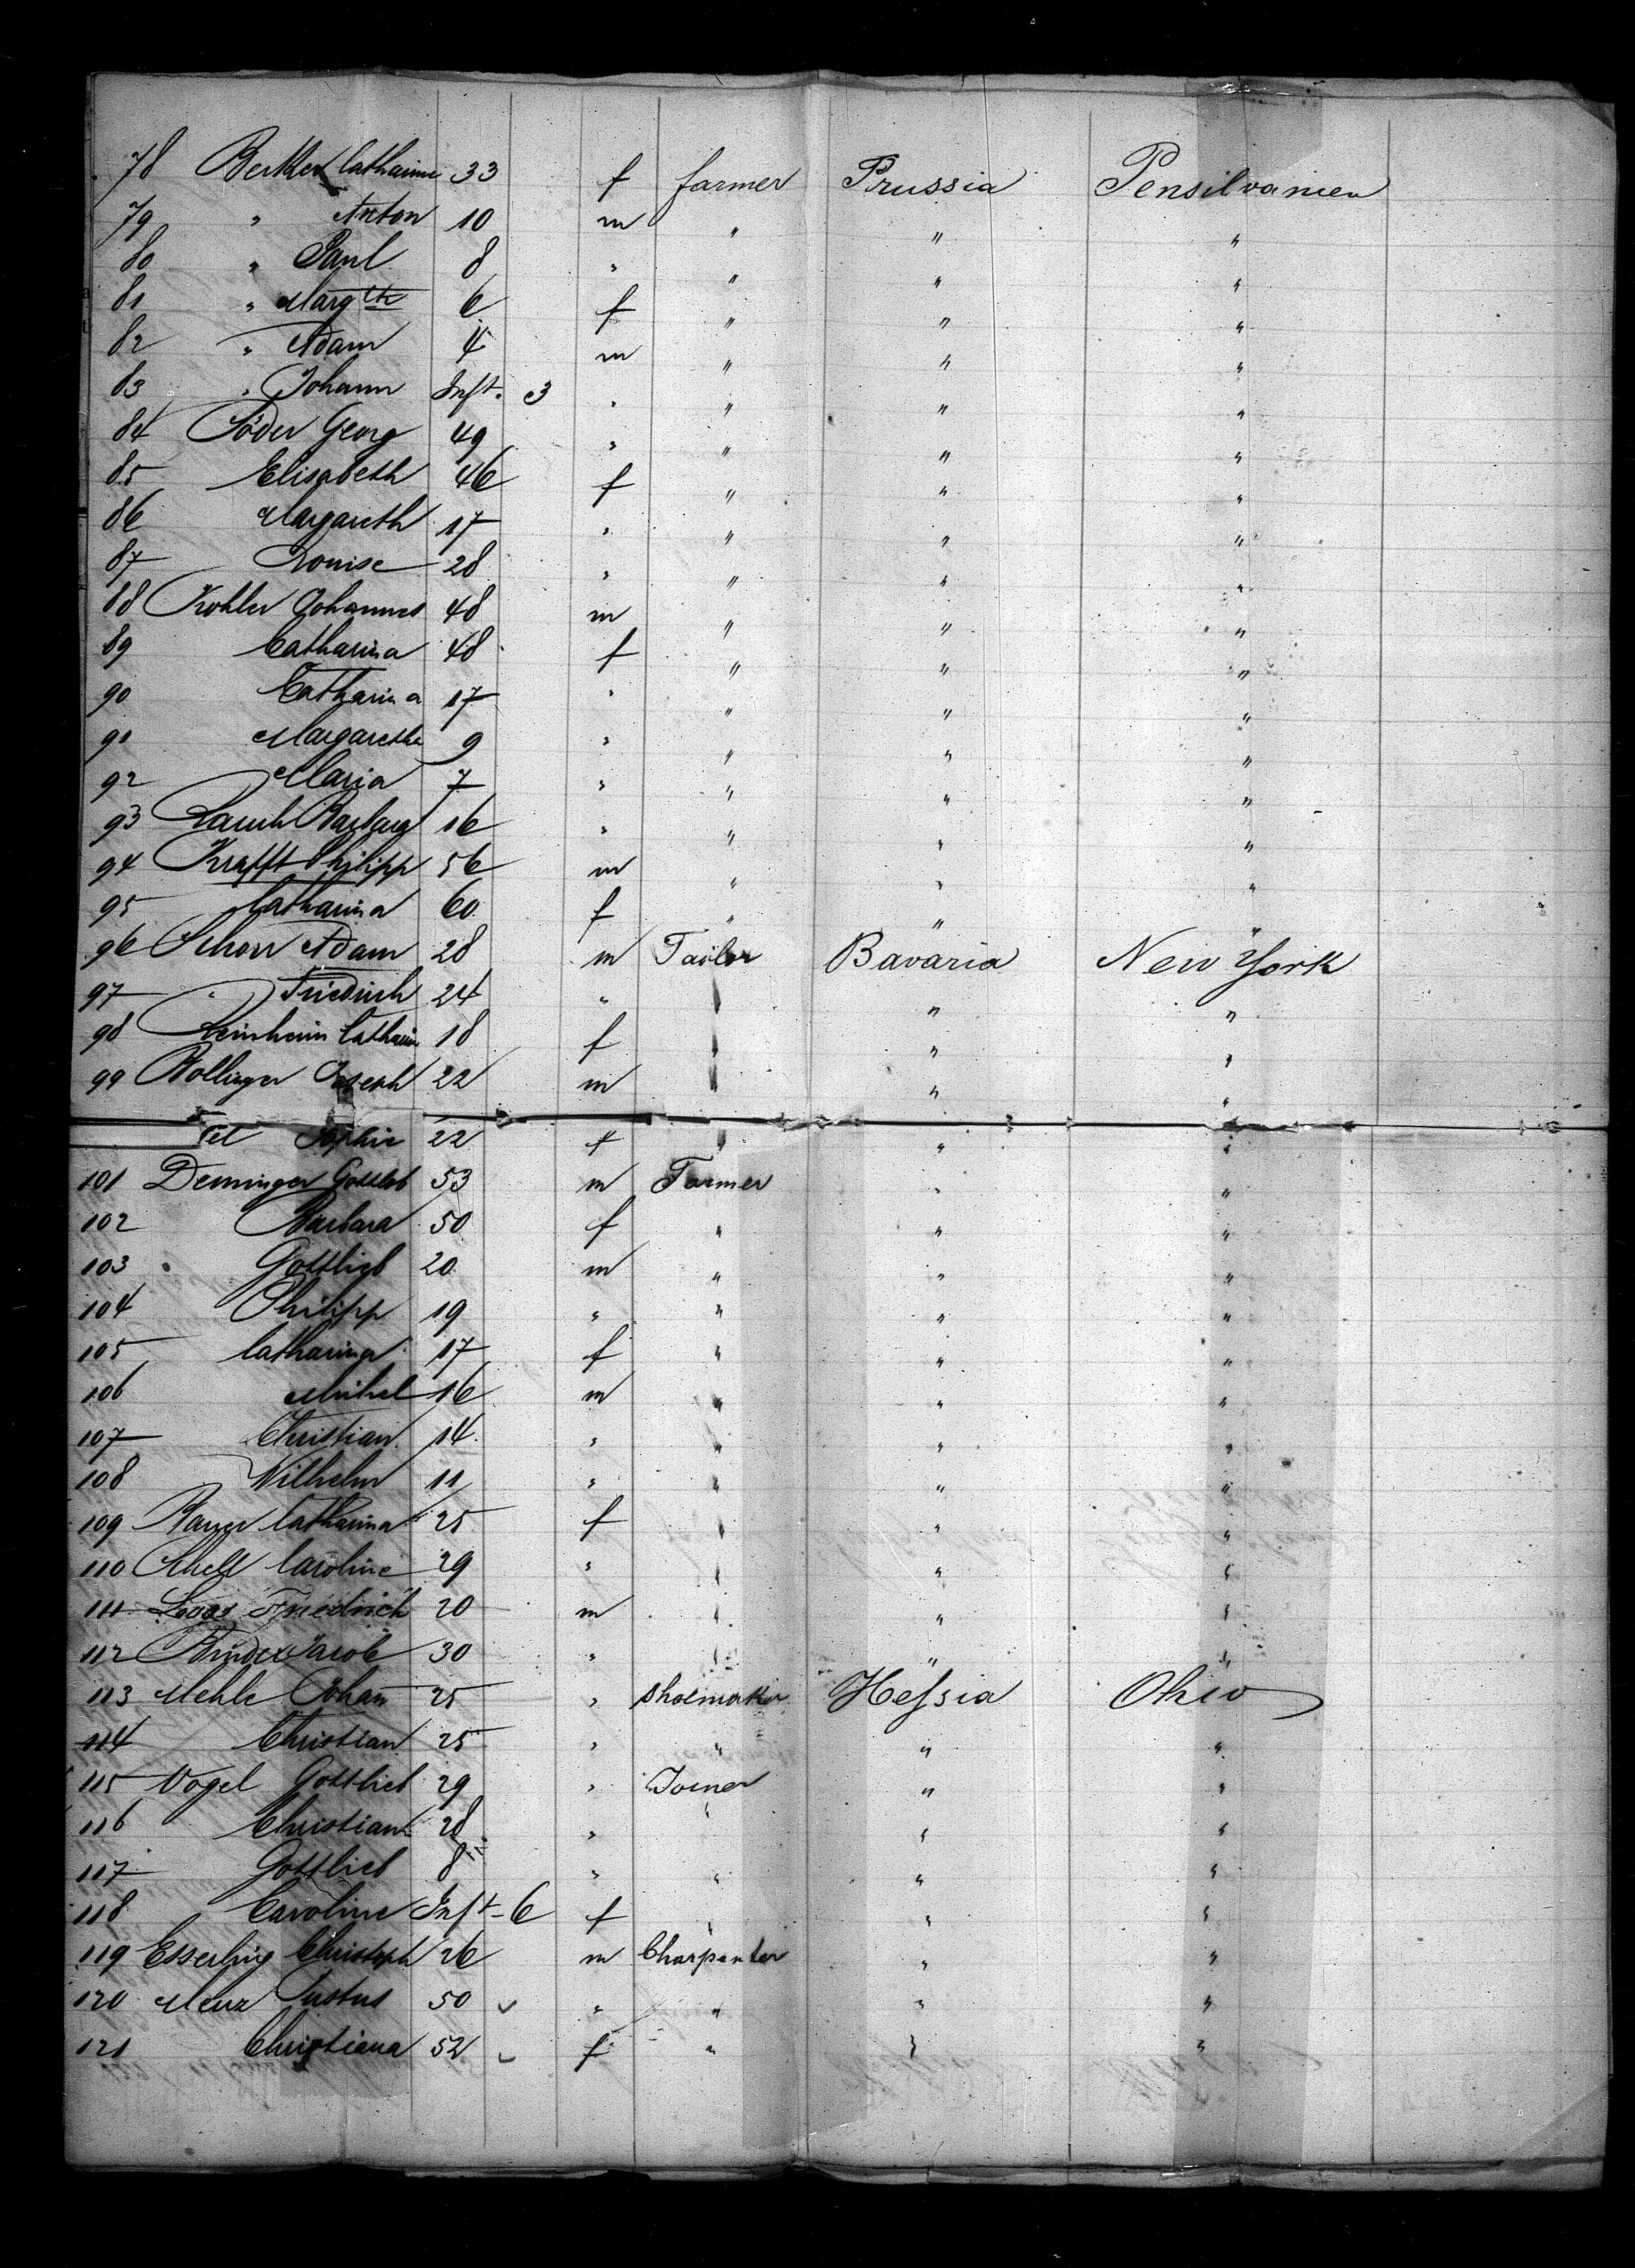 78 Berkker Catharine 33 f farmer Prussia Pensilvanien
79 " Anton 10 m " " "
80 " Paul 8 " " " "
81 " Margeth 6 f " " "
82 " Adam 4 m " " "
83 " Johann Inft. 3 " " " "
84 Söder Georg 49 " " " "
85 Elisabeth 46 f " " "
86 Margareth 17 " " " "
87 Louise 28 " " " "
88 Kohler Johannes 48 m " " "
89 Catharina 48 f " " "
90 Catharina 17 " " " "
91 Margaretha 9 " " " "
92 Maria 7 " " " "
93 Rauch Barbara 16 " " " "
94 Krafft Philipp 56 m " " "
95 Catharina 60 f " " "
96 Schorr Adam 28 m Tailor Bavaria New York
97 " Friedrich 24 " " " "
98 Reinheim Catharine 18 f " " "
99 Bollinger Joseph 22 m " " "
Sophie 22 f " " "
101 Denninger Gottlob 53 m Farmer " "
102 Barbara 50 f " " "
103 Gottlieb 20 m " " "
104 Philipp 19 " " " "
105 Catharina 17 f " " "
106 Michel 16 m " " "
107 Christian 14 " " " "
108 Wilhelm 11 " " " "
109 Bauer Catharina 25 f " " "
110 Schell Caroline 29 " " " "
111 Friedrich 20 m " " "
112 Bruder Jacob 30 " " " "
113 Mehle Johan 25 " Shoemaker Hessia Ohio
114 Christian 25 " " " "
115 Vogel Gottlieb 29 " Joiner " "
116 Christian 28 " " " "
117 Gottlieb 8 " " " "
118 Caroline Inft - 6 f " " "
119 Esserling Christoph 26 m Charpenter " "
120 Menz Justus 50 " " " "
121 Christiana 52 f " " "